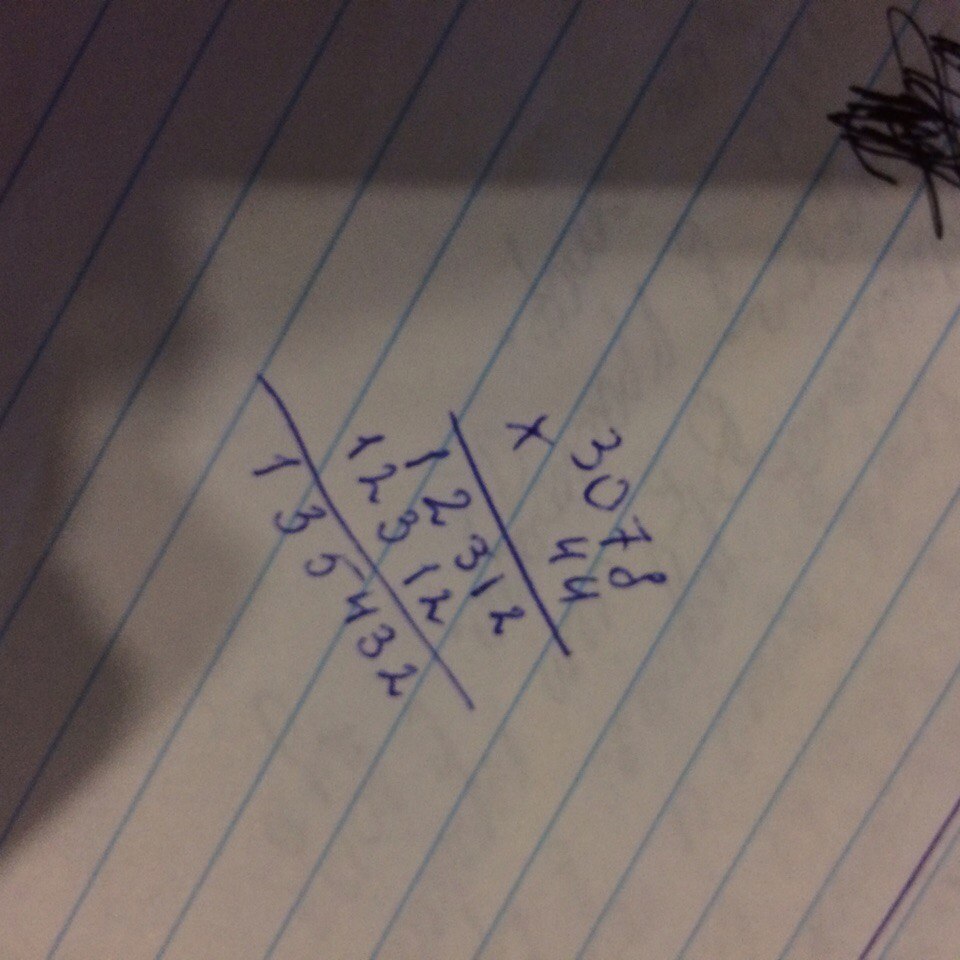 × 3078
44
12312
12312
135432